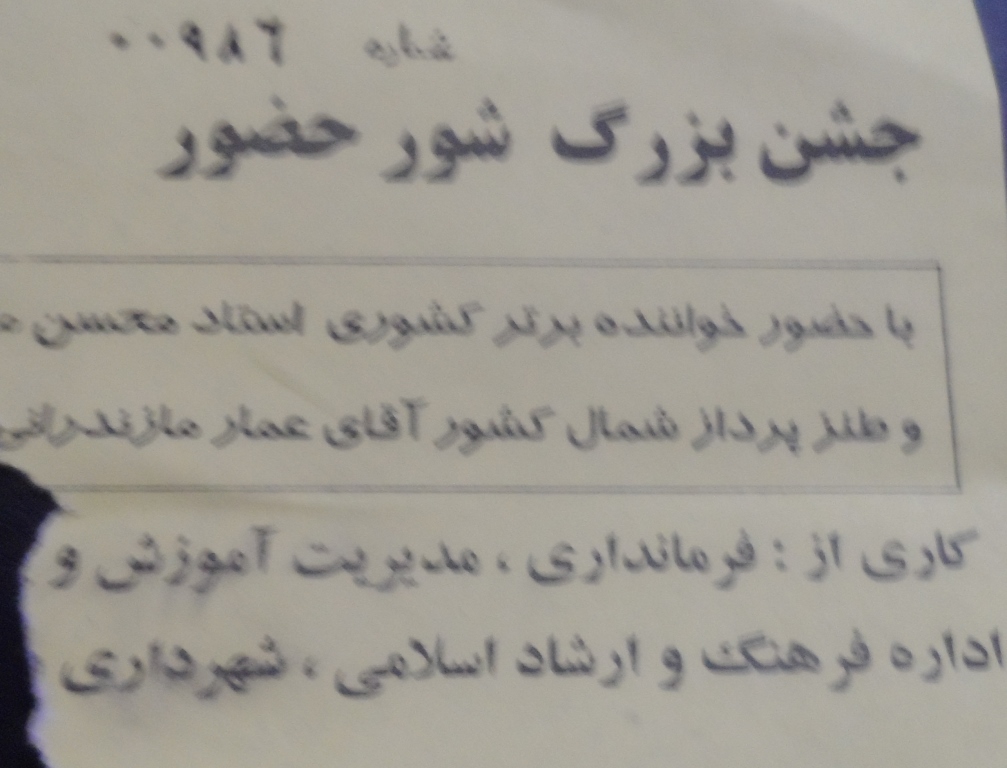 شماره ۰۰۹۸۶
جشن بزرگ شور حضور
با حضور خواننده برتر کشوری استاد محسن
و طنز پرداز شمال کشور آقای عمار مازندرانی
کاری از : فرمانداری ، مدیریت آموزش و
اداره فرهنگ و ارشاد اسلامی ، شهرداری